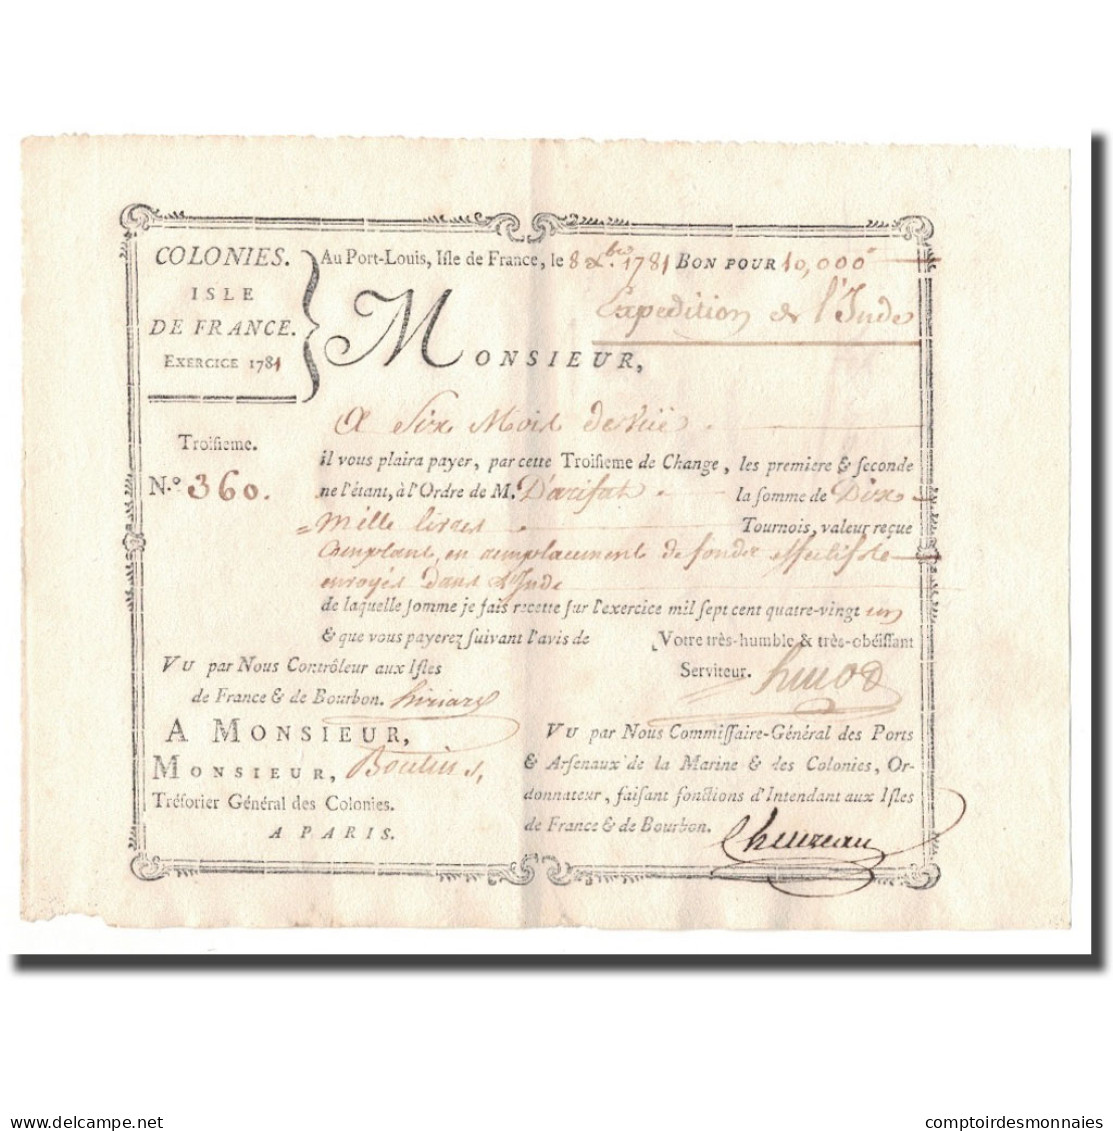 COLONIES.
ISLE
DE FRANCE.
EXERCICE 1781
Au Port-Louis, Isle de France, le 8 Xbre. 1781 BON POUR 10,000
Expedition de l'Inde
MONSIEUR,
A Six Mois de vüe
Troisieme.
N.º 360.
il vous plaira payer, par cette Troisieme de Change, les premiere & seconde
ne l'étant, à l'Ordre de M. D'arifat la somme de Dix
mille livres Tournois, valeur reçue
comptant, en remplacement de fonds effectifs
envoyés dans l'Inde
de laquelle somme je fais recette sur l'exercice mil sept cent quatre-vingt un
& que vous payerez suivant l'avis de
Votre très-humble & très-obéissant
Serviteur.
VU par Nous Contrôleur aux Isles
de France & de Bourbon.
A MONSIEUR,
MONSIEUR, Boutin,
Trésorier Général des Colonies.
A PARIS.
VU par Nous Commissaire-Général des Ports
& Arsenaux de la Marine & des Colonies, Or-
donnateur, faisant fonctions d'Intendant aux Isles
de France & de Bourbon.
Chevreau
delcampe.net
comptoirdesmonnaies